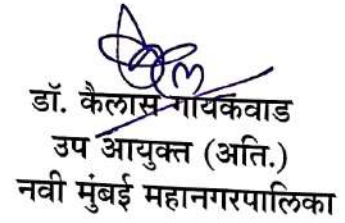 डॉ. कैलास गायकवाड
उप आयुक्त (अति.)
नवी मुंबई महानगरपालिका